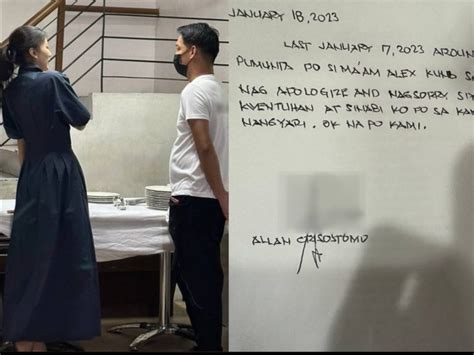 JANUARY 18, 2023
LAST JANUARY 17, 2023 AROUN
PUMUNTA PO SI MA'AM ALEX KUNG SA
NAG APOLOGIZE AND NAGSORRY SI
KWENTUHAN AT SINABI KO PO SA KA
NANGYARI. OK NA PO KAMI.
ALLAN CRISOSTOMO